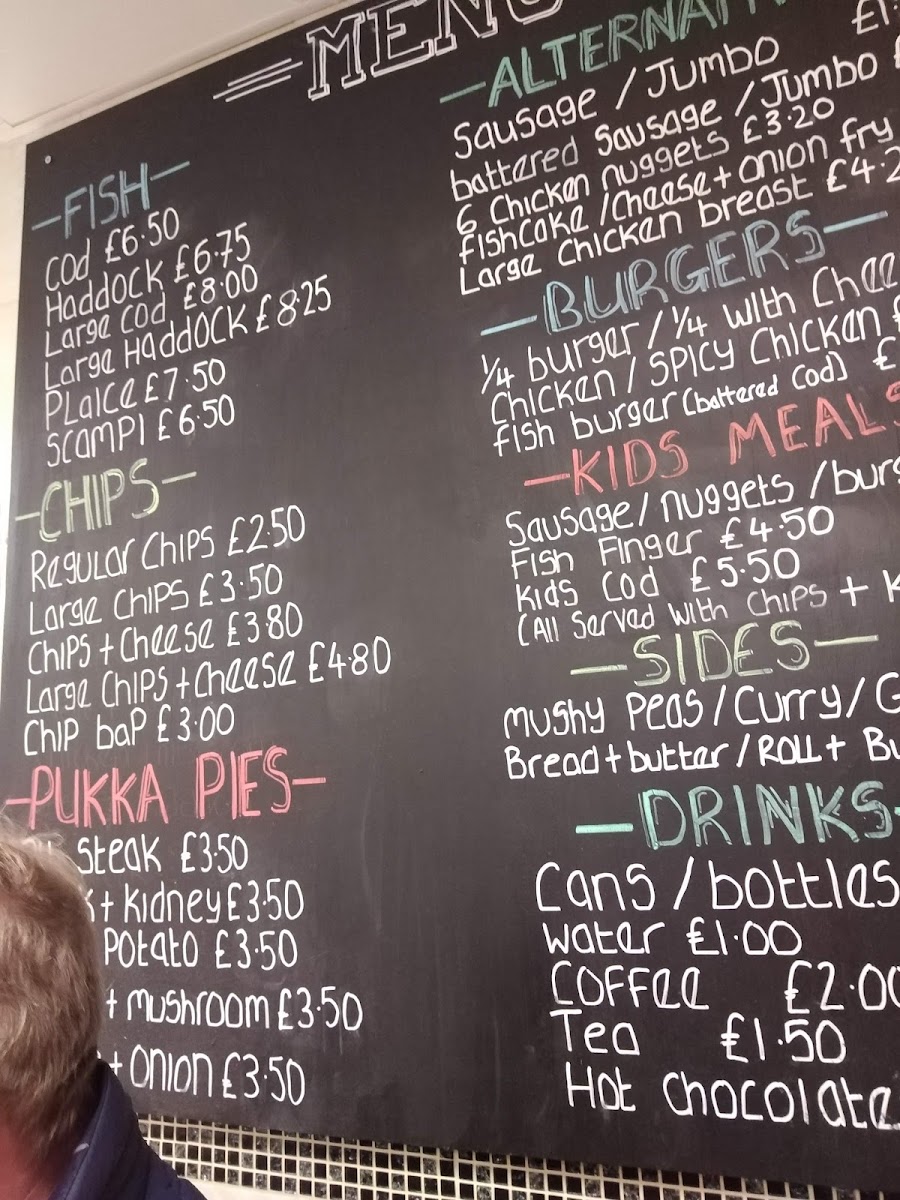 MENU
FISH
Cod £6.50
Haddock £6.75
Large Cod £8.00
Large Haddock £8.25
Plaice £7.50
Scampi £6.50
CHIPS
Regular Chips £2.50
Large Chips £3.50
Chips + Cheese £3.80
Large Chips + Cheese £4.80
Chip bap £3.00
PUKKA PIES
Steak £3.50
+ Kidney £3.50
Potato £3.50
+ mushroom £3.50
+ Onion £3.50
ALTERNATI
Sausage / Jumbo £1.
battered Sausage / Jumbo £
6 Chicken nuggets £3.20
fishcake / Cheese + onion fry
Large Chicken breast £4.2
BURGERS
1/4 burger / 1/4 With Chee
Chicken / Spicy Chicken £
fish burger (battered Cod) £
KIDS MEALS
Sausage / nuggets / burg
Fish Finger £4.50
Kids Cod £5.50
(All Served With Chips + K
SIDES
Mushy Peas / Curry / G
Bread + butter / Roll + Bu
DRINKS
Cans / bottles
Water £1.00
Coffee £2.00
Tea £1.50
Hot Chocolate